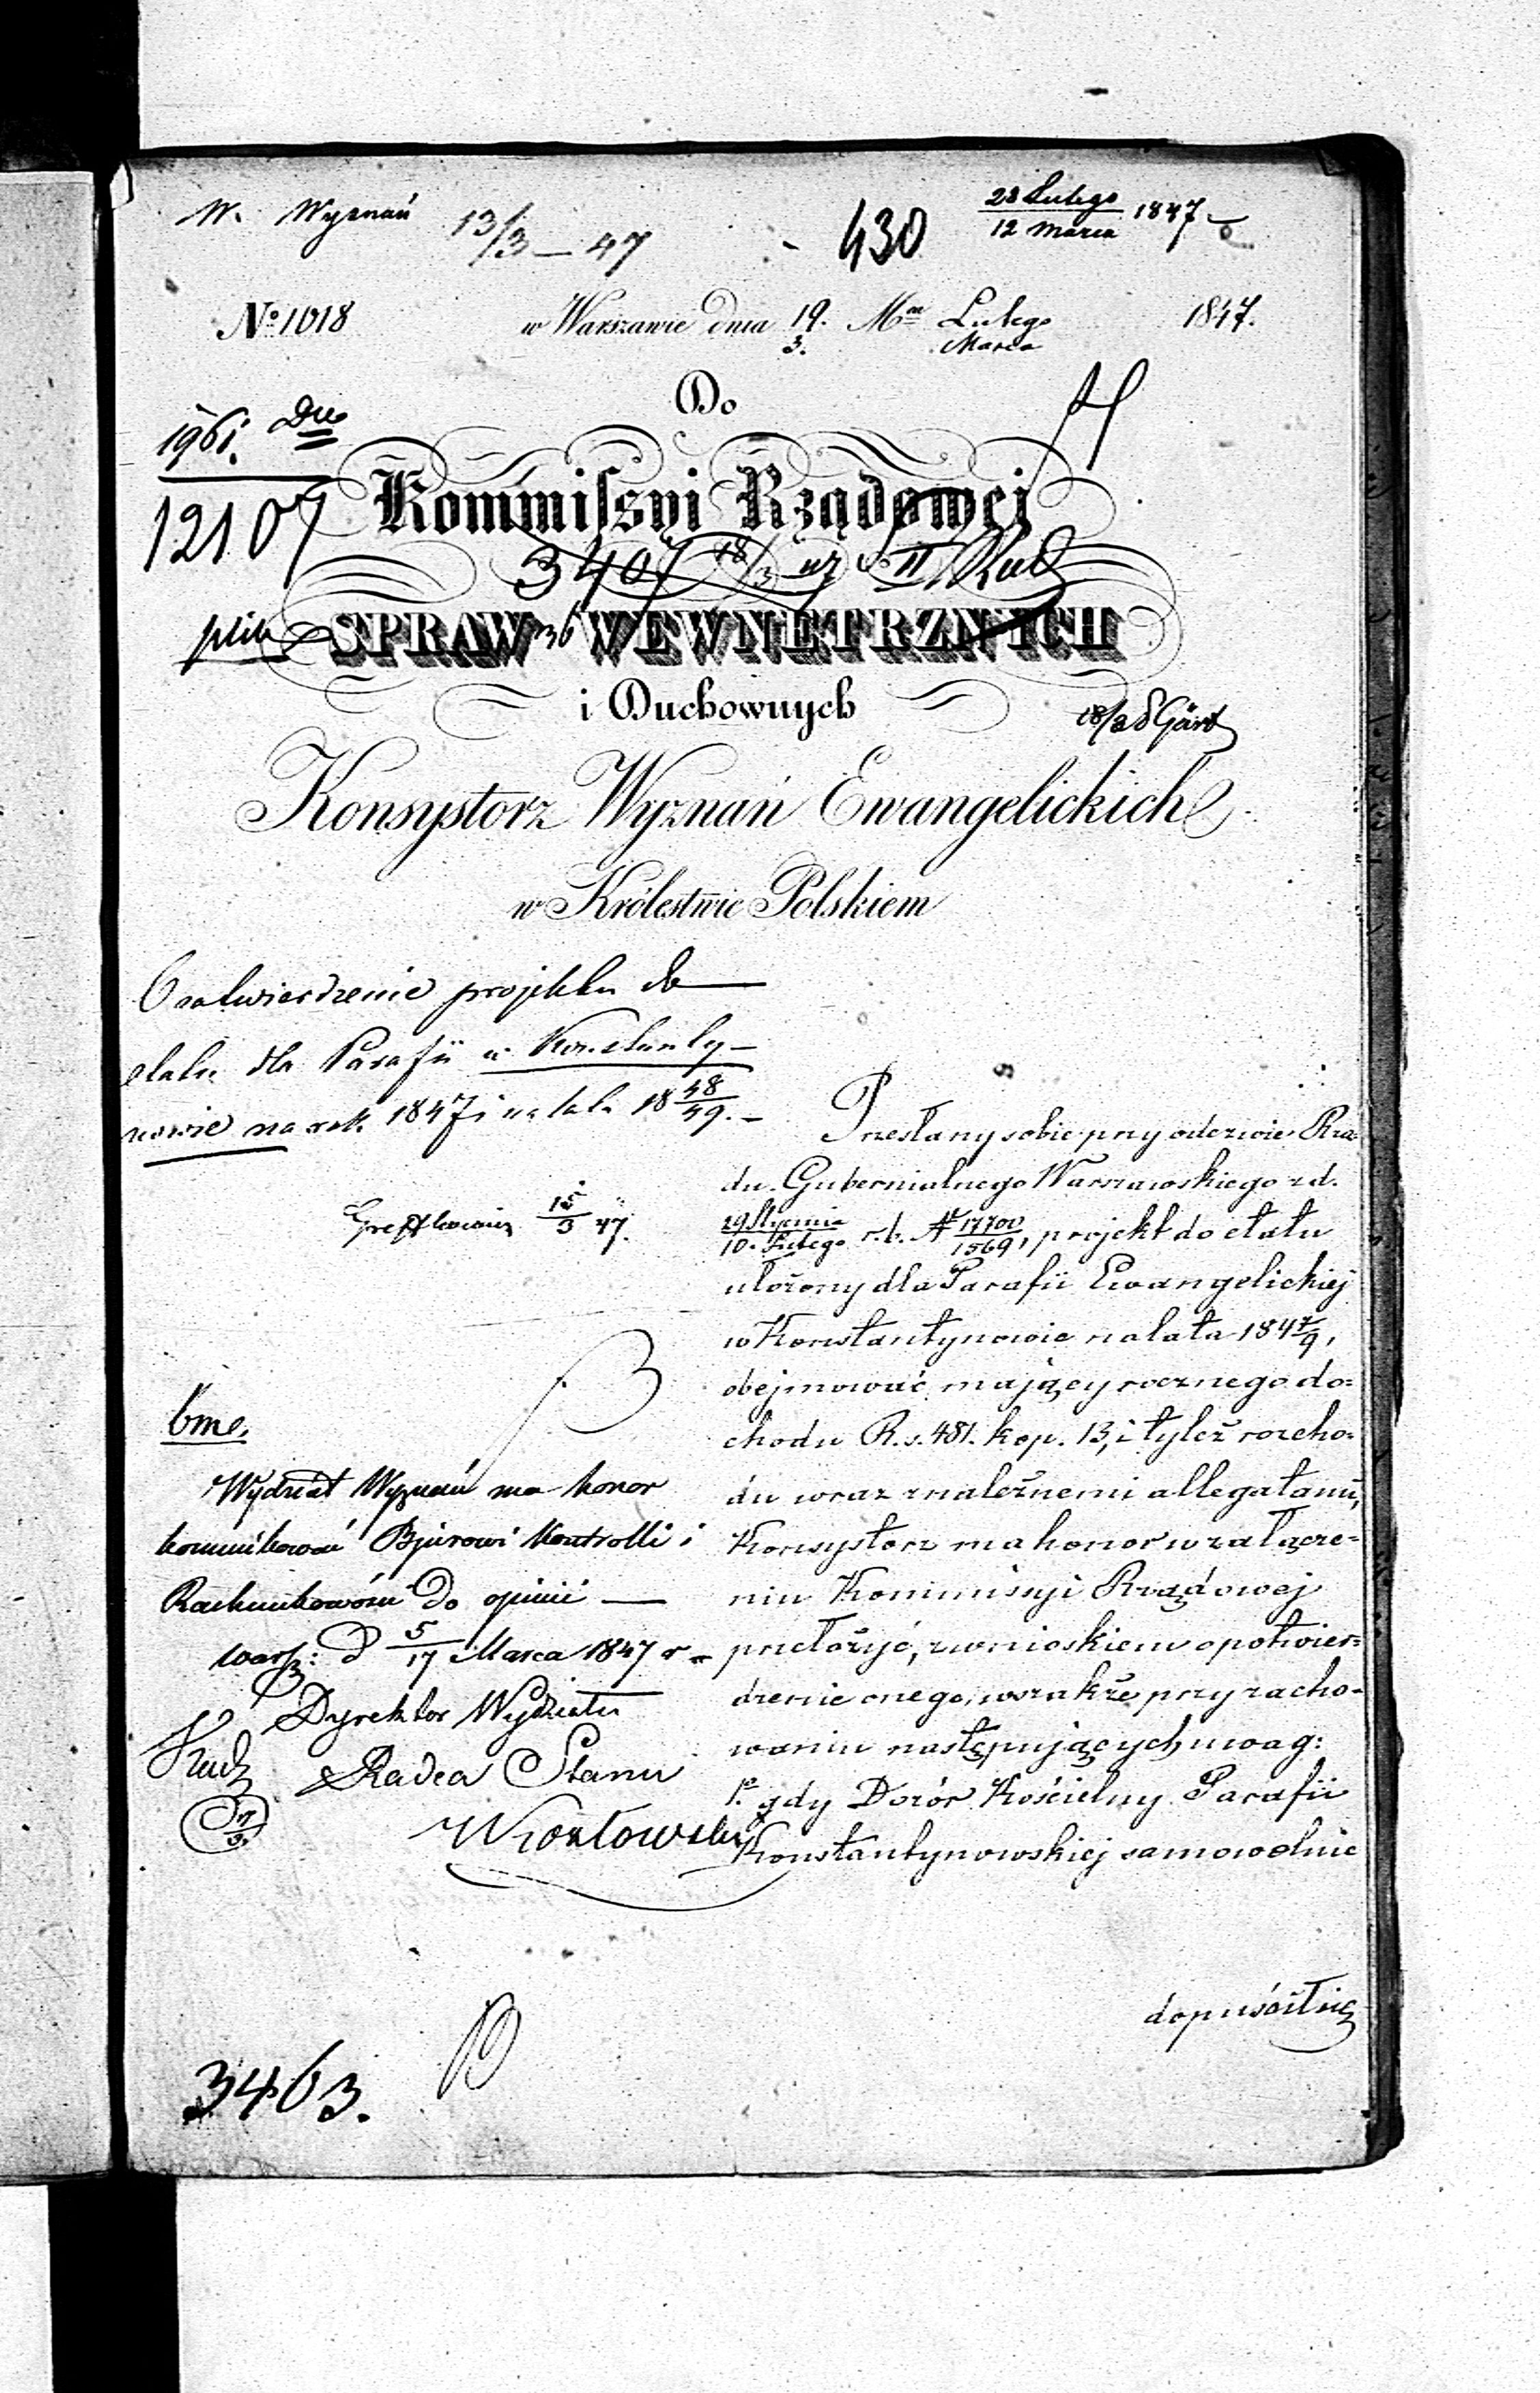 W. Wyznań 13/3 — 47
430
28 Lutego
12 Marca 1847
No 1018 w Warszawie dnia 19. Mca Lutego 1847.
3. Marca
Do
1961.
12107
Kommissyi Rządowej
3407 18/3 47
SPRAW WEWNĘTRZNYCH
i Duchownych
18/3
Konsystorz Wyznań Ewangelickich
w Królestwie Polskiem
O zatwierdzenie projektu do
etatu dla Parafii w Konstanty-
nowie na rok 1847 i na lata 18 48/49. —
15/3 47.
Przesłany sobie przy odezwie Rzą=
du Gubernialnego Warszawskiego z d.
29 Stycznia
10. Lutego r. b. № 17700/1569, projekt do etatu
ułożony dla Parafii Ewangelickiej
w Konstantynowie na lata 184 7/9,
obejmować mający rocznego do=
chodu R. s. 481. kop. 13, i tyleż rozcho=
du wraz z należnemi allegatami,
Konsystorz ma honor w załącze=
niu Kommissyi Rządowej
przełożyć, z wnioskiem o potwier=
dzenie onego, wszakże przy zacho=
waniu następujących uwag:
1e gdy Dozór Kościelny Parafii
Konstantynowskiej samowolnie
dopuścił się
bme.
Wydział Wyznań ma honor
kommunikować Bjurowi Kontrolli i
Rachunkowości do opinii —
Warsz: d 5/17 Marca 1847 r
Dyrektor Wydziału
Radca Stanu
3463.